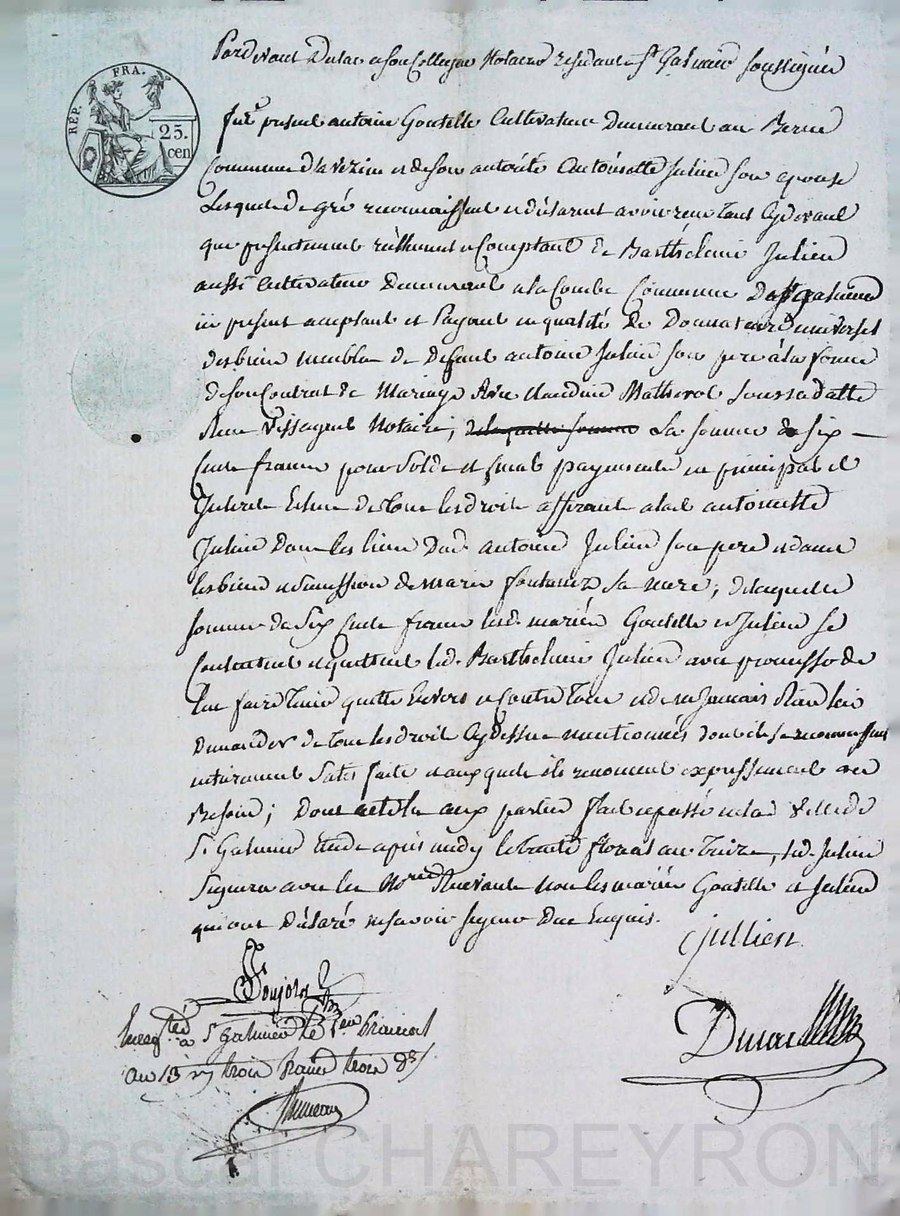 Pardevant Dulac et son Collegue Notaires residants St Galmier soussignés
RÉP. FRA.
25.
cen
fut present antoine Goutelle Cultivateur Demeurant au Berne
Commune de la verine et de son autorité Antoinette Julien son epouse
Lesquels de gré reconnaissent et déclarent avoir reçu tant cydevant
que presentement réellement et Comptant de Barthelemi Julien
aussi Cultivateur Demeurant a la Combe Commune De St galmier
ici present acceptant et Payant en qualité de Donnataire universel
des biens meubles de Defunt antoine Julien son pere à la forme
de son Contrat de Mariage Avec Claudine
Notaire, de laquelle somme La somme de six
Cents francs pour Solde et final payement en principal et
de tous les droits afferants a lad antoinette
Julien Dans les biens Dud. antoine Julien son pere et dans
les biens et succession de marie fontanez sa mere; de laquelle
somme de Six Cents francs lesd. mariés Goutelle et Julien se
Contentent et quittent led. Barthelemi Julien avec promesse de
L'en faire tenir quitte Envers et Contre tous et de ne Jamais Rien lui
Demander de tous les droits Cy Dessus mentionnés dont ils se reconnaissent
entierement Satisfaits et auxquels ils renoncent expressement au
Besoin; Dont acte aux parties fait et passé en lad Ville de
St Galmier Etude après midy le trente floreal an Treize, led. Julien
Signera avec les Nres non les mariés Goutelle et Julien
qui ont Déclaré ne savoir signer Due Enquis.
Jullien
Poujols
Enregtré à St Galmier le 1er Prairial
an 13 trois francs trois
Pascal CHAREYRON